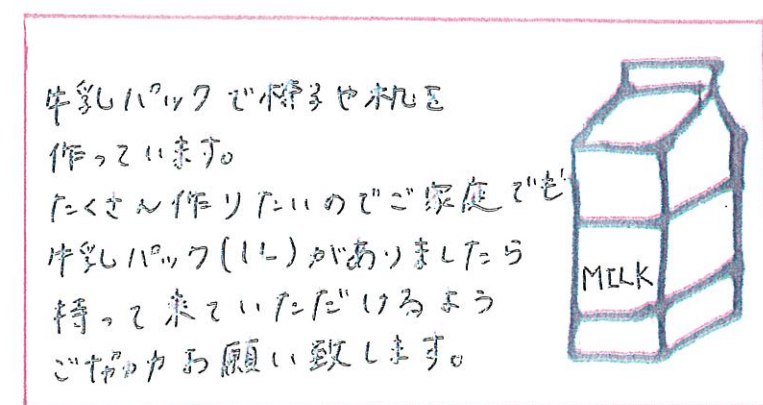 牛乳パックで椅子や机を
作っています。
たくさん作りたいのでご家庭でも
牛乳パック(1L)がありましたら
持って来ていただけるよう
ご協力お願い致します。
MILK